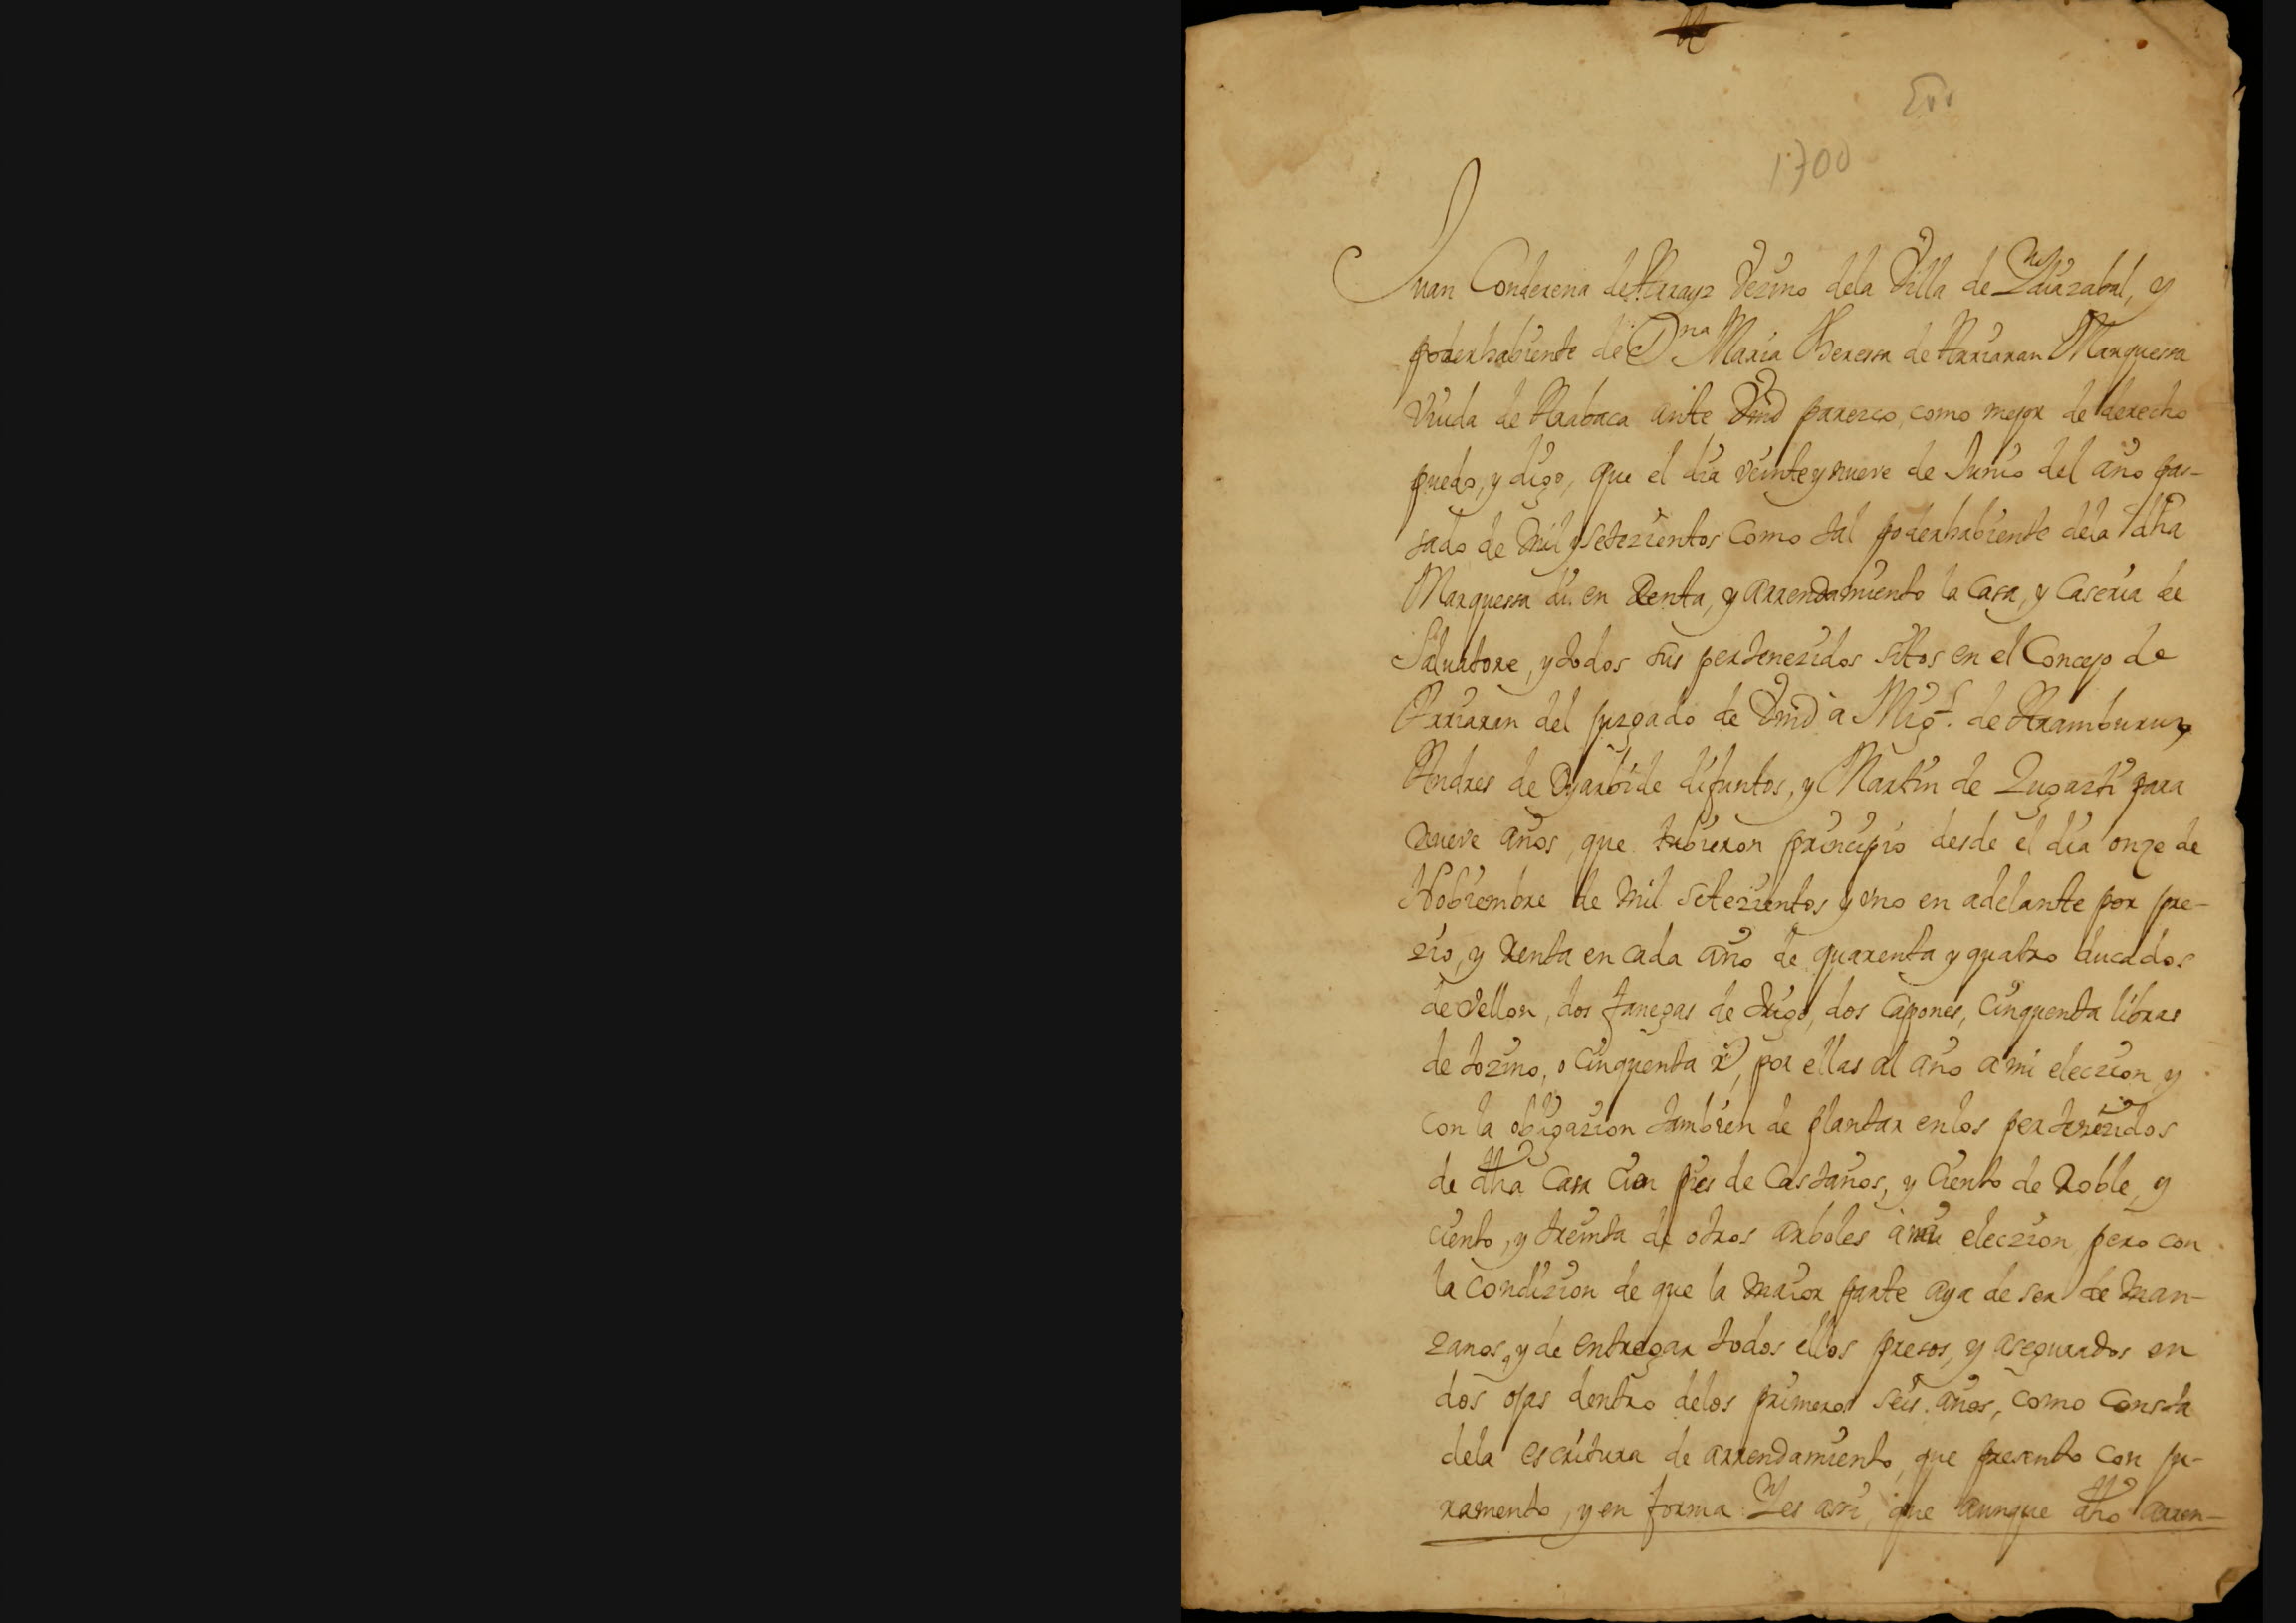 1700
Juan Conderena de Arrayz Vezino dela Villa de Ydiazabal, y
poderhabiente de Dna Maria Theressa de Arriaran Marquessa
Viuda de Arabaca ante Vmd parezco, como mejor de derecho
puedo, y digo, que el dia veinte y nueve de Junio del año pas-
sado de Mil y Setezientos como tal poderhabiente dela dha
Marquessa di en Renta, y arrendamiento la Casa, y Caseria de
Salvatore, y todos sus pertenezidos sitos en el Concejo de
Arriaran del juzgado de Vmd a Migl. de Aramburu, y
Andres de Oyarbide difuntos, y Martin de Zugazti para
nueve años, que tubieron principio desde el dia onze de
Nobiembre de Mil Setezientos y uno en adelante por pre-
zio, y Renta en cada año de quarenta y quatro ducados
de Vellon, dos fanegas de trigo, dos Capones, Cinquenta libras
de tozino, o Cinquenta rs, por ellas al año a mi eleczion, y
con la obligazion tambien de plantar en los pertenezidos
de dha Casa Cien pies de Castaños, y Ciento de Roble, y
ciento, y treinta de otros arboles à mi eleczion, pero con
la condizion de que la maior parte aya de ser de Man-
zanos, y de entregar todos ellos presos, y asegurados en
dos ojas dentro delos primeros seis años, como Consta
dela escritura de arrendamiento, que presento con ju-
ramento, y en forma. Y es assi, que aunque dho arren-